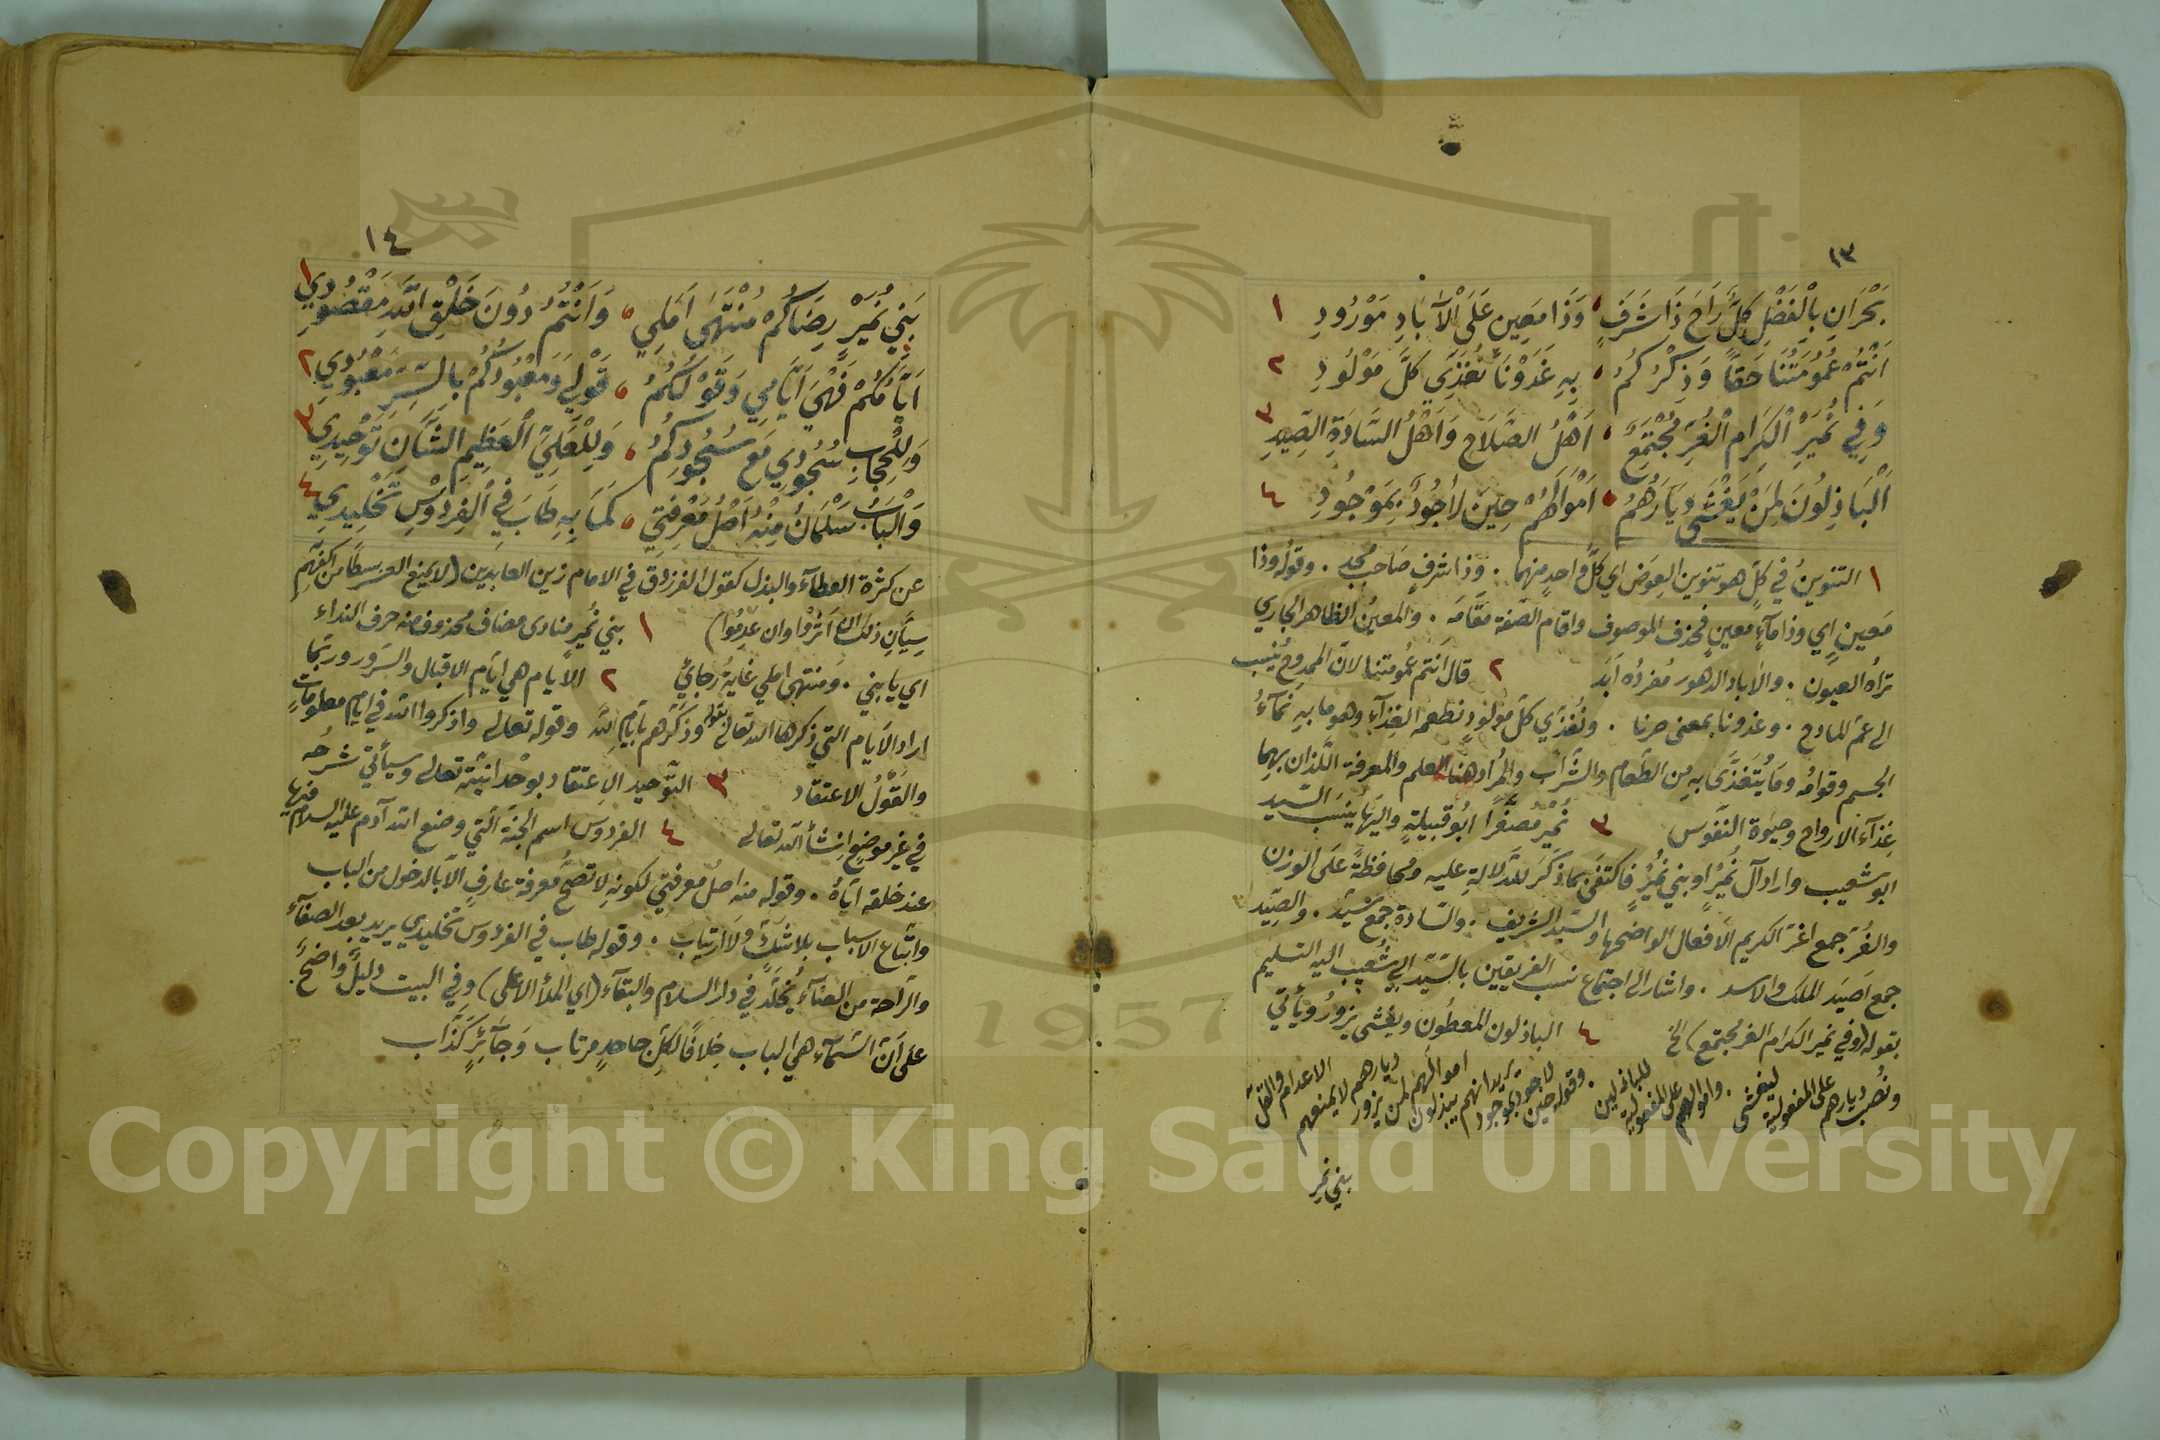 ١٣
بَحْرَانِ بِالْفَضْلِ كُلٌّ رَاحَ ذَا شَرَفٍ ، وَذَا مَعِينٍ عَلَى الْآبَادِ مَوْرُودِ ١
اَنْتُمْ عُمُومَتُنَا حَقًّا وَذِكْرُكُمُ ، بِهِ غَدَوْنَا نُغَذِّي كُلَّ مَوْلُودِ ٢
وَفِي نُمَيْرِ الْكِرَامِ الْغُرِّ مُجْتَمِعٌ ، اَهْلُ الصَّلَاحِ وَاَهْلُ السَّادَةِ الصِّيدِ ٣
اَلْبَاذِلُونَ لِمَنْ يَغْشَى دِيَارَهُمُ ، اَمْوَالَهُمْ حِينَ لَا جُودٌ بِمَوْجُودِ ٤
١ التنوينُ في كلٍّ هو تنوين العِوَض اي كلُّ واحدٍ منهما . وذا شرفٍ صَاحب مجد . وقوله وذا
مَعينٍ اي وذا مآءٍ معينٍ فحذف الموصوف واقام الصّفة مقَامَهُ . والمعينُ الظاهر الجاري
تراهُ العيون . والاباد الدهور مُفردُه اَبَد ٢ قال انتم عُمومتنا لانّ الممدوح يُنسب
الى عمّ للمادح . وغدونا بمعنى صرنا . ونُغذّي كلّ مولودٍ نطعمه الغِذآءَ وهو ما بهِ نَمآءُ
الجسم وقوامُه ومَا يُتَغذَّى به من الطّعام والشّراب والمُراد هنا العلم والمعرفة اللّذان بهما
غِذآءُ الارواح وحيوة النّفوس ٣ نُمَيْرٌ مُصغَّراً ابو قبيلةٍ واليهَا يُنسَب السّيد
ابو شعيب واراد آلَ نُمَيْرٍ او بني نُمَيْرٍ فاكتفى بما ذكَرَ للدّلالةِ عليه ومحافظةً على الوزن
والغُرّ جمع اغرّ الكريم الأفعال الواضحها والسّيّد الشريف . والسّادة جمع سيّد . والصِّيد
جمع اَصيَد الملك والاسد . واشار الى اجتماع نسب الفريقين بالسّيّد ابي شُعيب اليه التسليم
بقوله (وفي نمير الكرام الغر مجتمع) الخ ٤ الباذلون المعطُون ويغشى يزورُ ويأتي
ونُصب ديارهم على المفعوليّة ليغشى . واموالهم على المفعوليّة للباذلين . وقوله حين لا جودٌ بموجود يريد انهم يبذلون اموالهم لمن يزور ديارهم لا يمنعهم الاعدام والقلّ
بني نمير
١٤
بَنِي نُمَيْرٍ رِضَاكُمْ مُنْتَهَى اَمَلِي ، وَاَنْتُمُ دُونَ خَلْقِ اللّهِ مَقْصُودِي ١
اَيَّامُكُمْ فَهْيَ اَيَّامِي وَقَوْلُكُمُ ، قَوْلِي وَمَعْبُودُكُمْ بِالسِّرِّ مَعْبُودِي ٢
وَلِلْحِجَابِ سُجُودِي مَعْ سُجُودِكُمُ ، وَلِلْعَلِيِّ الْعَظِيمِ الشَّاَنِ تَوْحِيدِي ٣
وَالْبَابُ سَلْمَانُ مِنْهُ اَصْلُ مَعْرِفَتِي ، كَمَا بِهِ طَابَ فِي الْفِرْدَوْسِ تَخْلِيدِي ٤
عن كثرة العطآء والبذل كقول الفرزدق في الامام زين العابدين (لا يمنع العسر بسطًا من اكفّهم
سِيّانِ ذلك ان اَثْرَوْا وان عَدِمُوا) ١ بني نُمَيرٍ منادى مضاف محذوف منه حرف النداء
اي يا بني . ومنتهى املي غايةُ رجائي ٢ الأيام هي ايّام الاقبال والسّرور وربّما
اراد الايّام التي ذكرها الله تعالى بقوله وذكّرهم بأيّام الله وقوله تعالى واذكروا الله في ايام معلومات
والقَوْلُ الاعتقاد ٣ التّوحيد الاعتقاد بوحْدانيّته تعالى وسيأتي شرحُه
في غير موضعٍ إنشأ الله تعالى ٤ الفردوس اسم الجنّة التي وضع الله آدم عليه السلام فيها
عند خلقه ايّاهُ . وقوله منه اصل معرفتي لكونهِ لا تصحُّ معرفة عارفٍ الّا بالدخول من الباب
واتّباع الاسباب بلا شكٍّ ولا ارتياب . وقوله طاب في الفردوس تخليدي يريد بعد الصفآءِ
والرّاحة من العنآء يُخلّد في دار السلام والبقآء (اي الملأ الاعلى) وفي البيت دليلٌ واضحٌ
على اَنّ السّمآءَ هي الباب خِلافًا لكلّ جاحدٍ مرتاب وَجَائرٍ كذّاب
Copyright © King Saud University
1957